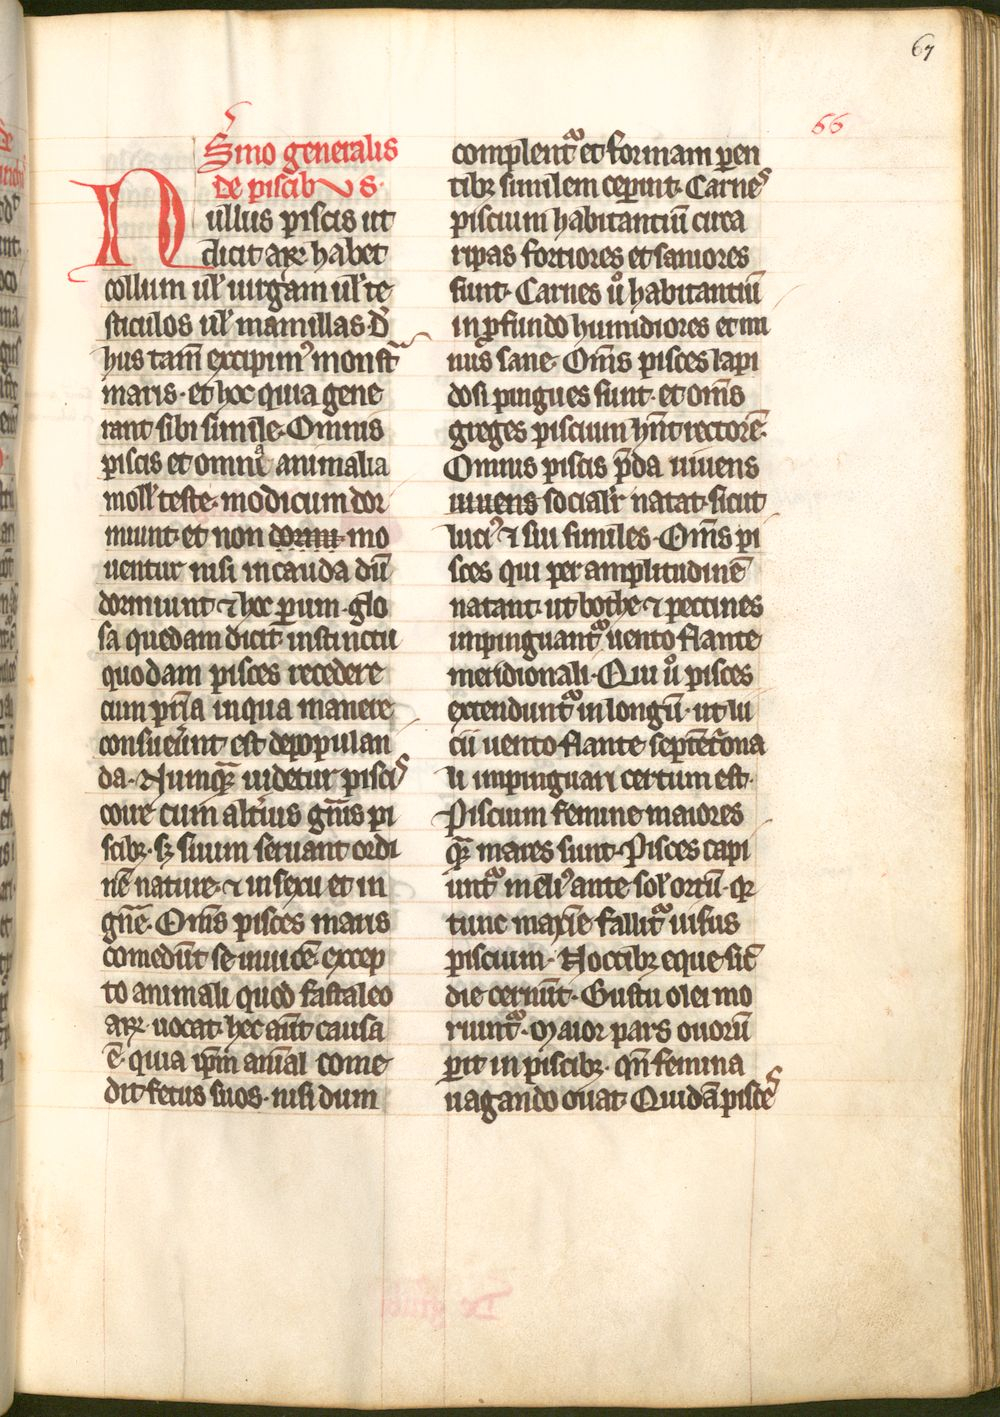 67
66
S̄mo generalis
de piscibus.
Nullus piscis ut
dicit arꝝ habet
collum ul̄ uirgam ul̄ te
sticulos ul̄ mamillas. D̓
hus tam̄ excipim᷒ monst̄
maris. et hoc quia gene
rant sibi simile. Omnis
piscis et omnia animalia
moll̓ teste. modicum dor
miunt. et non dormi. mo
uentur nisi in cauda dū
dormiunt ⁊ hoc ꝑum. glo
sa quedam dicit. instinctu
quodam pisces recedere
cum pr̄ia in qua manere
consueūnt est depopulan
da. Nunqꝫ uidetur piscis
coire cum alt̓ius gn̄is pi
scibꝫ. sꝫ suum seruant ordi
nē nature. ⁊ in sexu et in
gn̄e. Om̄s pisces maris
comedūt se inuicē. excep
to animali quod fastaleo
arꝝ uocat. hec aūt causa
ē. quia ip̄m anīal come
dit fetus suos. nisi dum
complentᷣ et formam paren
tibꝫ similem ceꝑint. Carnes
piscium habitantiū circa
ripas fortiores et saniores
sunt. Carnes ů habitantiū
in ꝓfundo humidiores et mi
nus sane. Om̄s pisces lapi
dosi pingues sunt. et om̄s
greges piscium hn̄t rectorē.
Omnis piscis p̄da uiuens
uiuens socialr̓ natat. sicut
luci᷒ ⁊ sui similes. Om̄s pi
sces qui per amplitudinē
natant. ut bothe. ⁊ pectines
impinguantᷣ uento flante
meridionali. Qui ů pisces
extenduntᷣ in longū. ut lu
cii uento flante septēt̓ona
li impinguari certum est.
Piscium femine maiores
qꝫ mares sunt. Pisces capi
untᷣ meli᷒ ante sol̓ ortū. qꝛ
tunc maxīe fallitᷣ uisus
piscium. Noctibꝫ eque sic̄
die cernūt. Gustu olei mo
riuntᷣ. Maior pars ouorū
ꝑit in piscibꝫ. qn̄ femina
uagando ouat. Quidā pisces